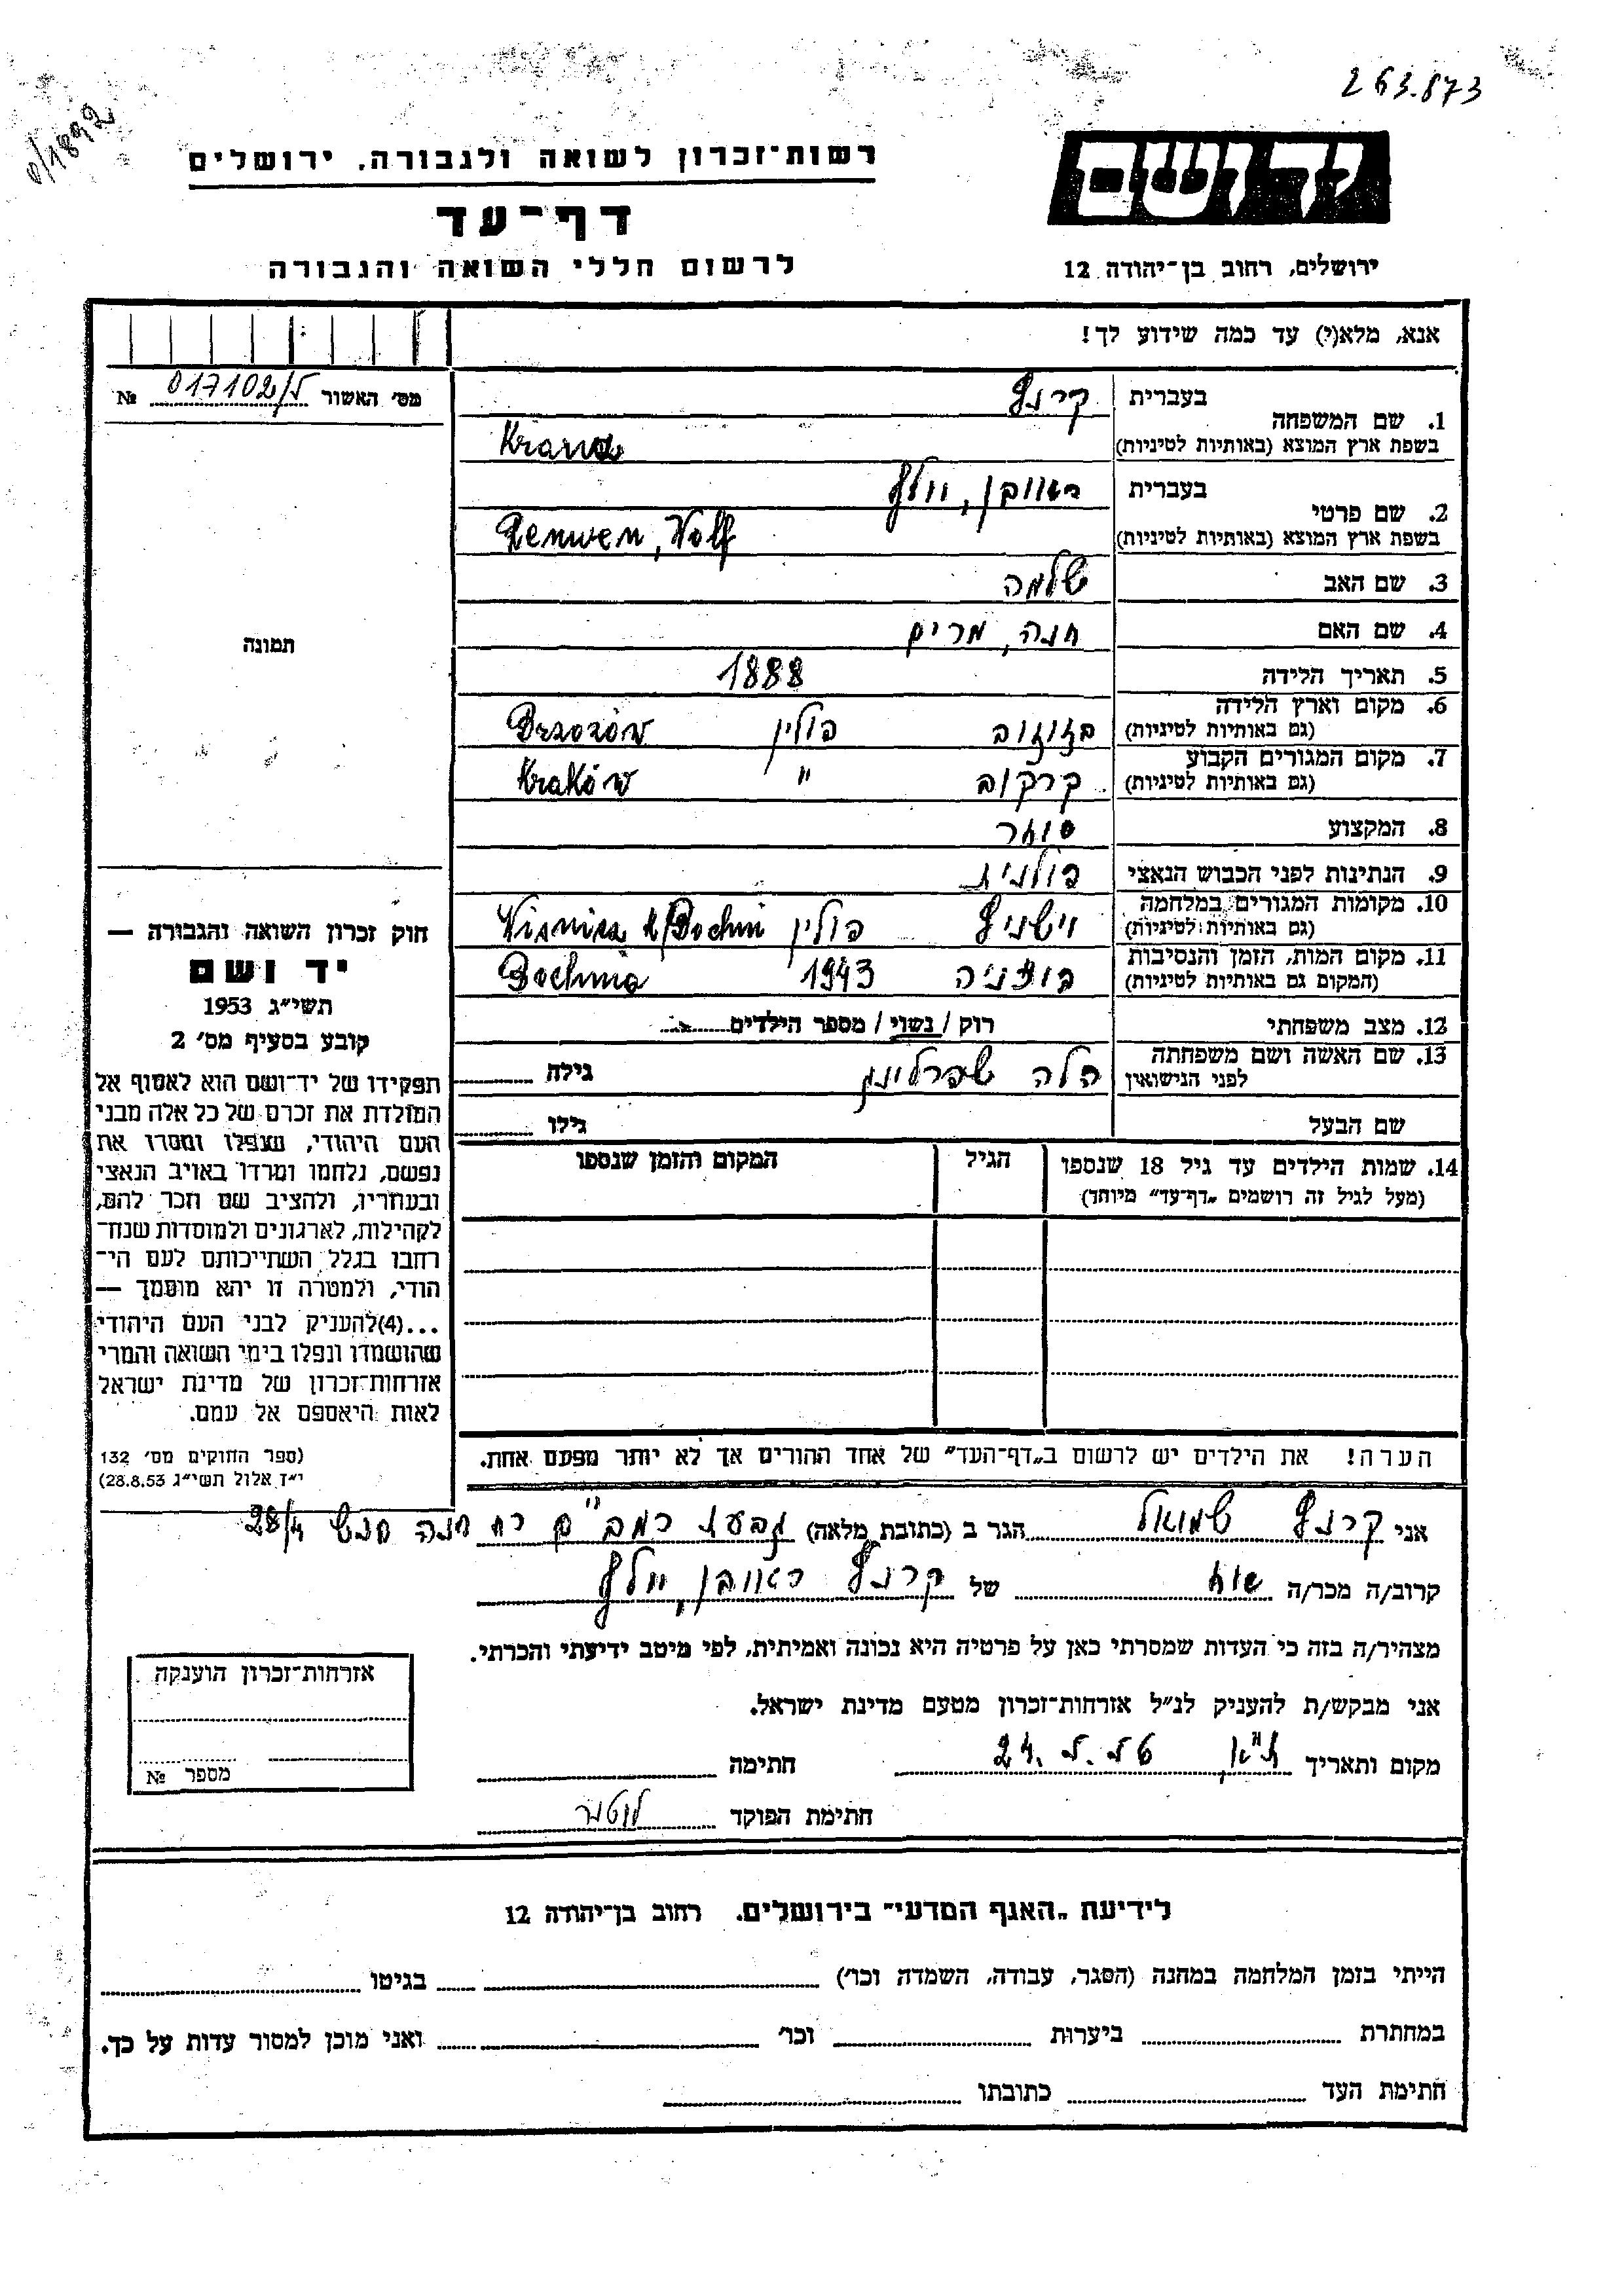 263.873
0/1892
יד ושם
רשות־זכרון לשואה ולגבורה. ירושלים
דף־עד
ירושלים, רחוב בן־יהודה 12
לרשום חללי השואה והגבורה
אנא, מלא(י) עד כמה שידוע לך!
מס׳ האשור № 017102/ל
1. שם המשפחה
בעברית
בשפת ארץ המוצא (באותיות לטיניות)
2. שם פרטי
בעברית ראובן, וולף
בשפת ארץ המוצא (באותיות לטיניות) Renwen, Wolf
3. שם האב שלמה
4. שם האם חנה, מרים
5. תאריך הלידה 1888
6. מקום וארץ הלידה
(גם באותיות לטיניות) בזוזוב פולין Brzozów
7. מקום המגורים הקבוע
(גם באותיות לטיניות) קרקוב " Kraków
8. המקצוע סוחר
9. הנתינות לפני הכבוש הנאצי פולנית
10. מקומות המגורים במלחמה
(גם באותיות לטיניות) פולין
11. מקום המות, הזמן והנסיבות
(המקום גם באותיות לטיניות) בוצניה 1943 Bochnia
12. מצב משפחתי רוק / נשוי / מספר הילדים
13. שם האשה ושם משפחתה
לפני הנישואין הלה גילה
שם הבעל גילו
14. שמות הילדים עד גיל 18 שנספו
(מעל לגיל זה רושמים „דף־עד״ מיוחד)
הגיל
המקום והזמן שנספו
הערה! את הילדים יש לרשום ב„דף־העד״ של אחד ההורים אך לא יותר מפעם אחת.
תמונה
חוק זכרון השואה והגבורה —
יד ושם
תשי״ג 1953
קובע בסעיף מס׳ 2
תפקידו של יד־ושם הוא לאסוף אל
המולדת את זכרם של כל אלה מבני
העם היהודי, שנפלו ומסרו את
נפשם, נלחמו ומרדו באויב הנאצי
ובעוזריו, ולהציב שם וזכר להם,
לקהילות, לארגונים ולמוסדות שנח־
רבו בגלל השתייכותם לעם הי־
הודי, ולמטרה זו יהא מוסמך —
...(4)להעניק לבני העם היהודי
שהושמדו ונפלו בימי השואה והמרי
אזרחות־זכרון של מדינת ישראל
לאות היאספם אל עמם.
(ספר החוקים מס׳ 132
י״ד אלול תשי״ג 28.8.53)
אני שמואל הגר ב (כתובת מלאה) גבעת רמב"ם רח חנה סנש 28/4
קרוב/ה מכר/ה אח של ראובן, וולף
מצהיר/ה בזה כי העדות שמסרתי כאן על פרטיה היא נכונה ואמיתית, לפי מיטב ידיעתי והכרתי.
אני מבקש/ת להעניק לנ״ל אזרחות־זכרון מטעם מדינת ישראל.
מקום ותאריך חתימה
חתימת הפוקד
אזרחות־זכרון הוענקה
מספר №
לידיעת „האגף המדעי״ בירושלים. רחוב בן־יהודה 12
הייתי בזמן המלחמה במחנה (הסגר, עבודה, השמדה וכו׳) בגיטו
במחתרת ביערות וכו׳ ואני מוכן למסור עדות על כך.
חתימת העד כתובתו